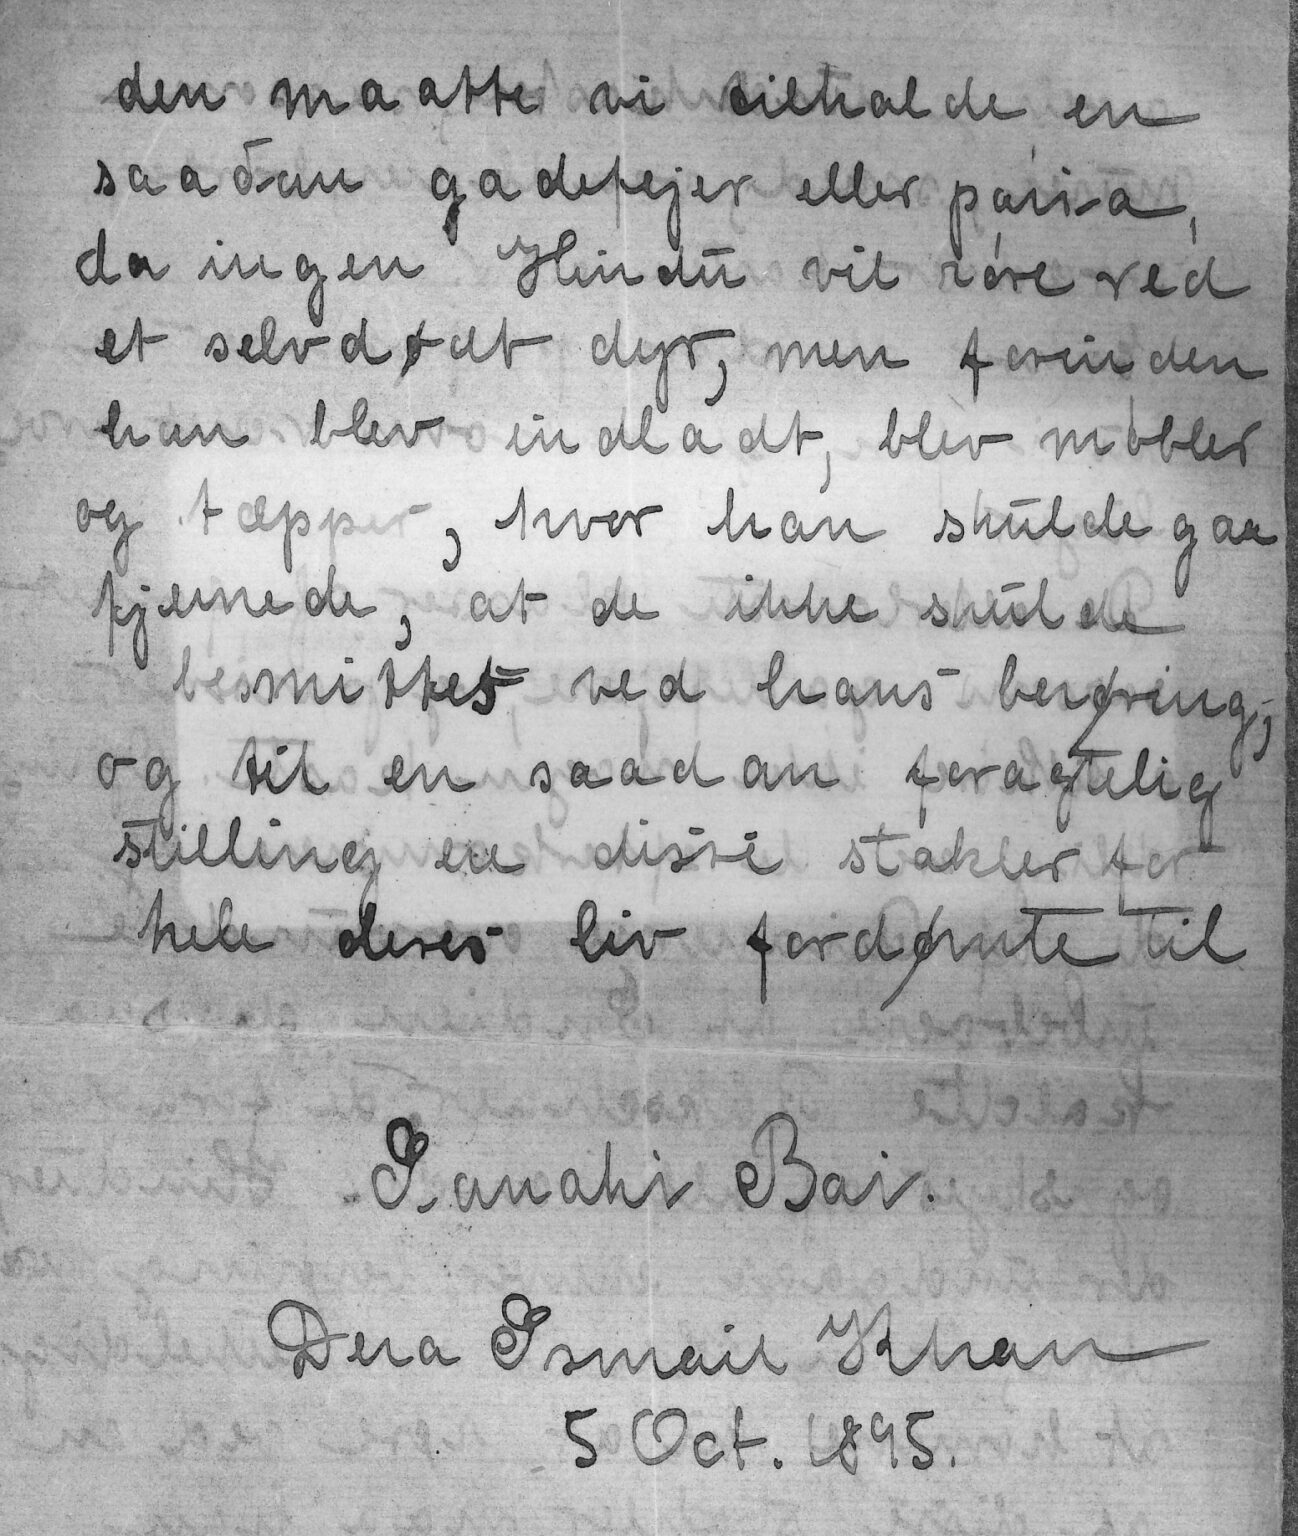 den maatte vi tilkalde en
saadan gadefejer eller paria,
da ingen Hindu vil røre ved
et selvdødt dyr, men forinden
han blev indladt, blev møbler
og tæpper, hvor han skulde gaa
fjernede, at de ikke skulde
besmittes ved hans berøring,
og til en saadan foragtelig
stilling ere disse stakler for
hele deres liv fordømte til
Sanahi Bai.
Dera Ismail Khan
5 Oct. 1895.